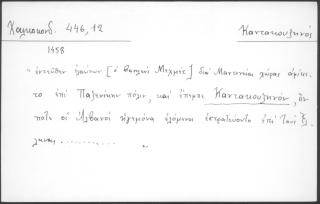 Χαλκοκονδ. 446, 12 Καντακουζηνός
1458
"ἐντεῦθεν ἐλαύνων [ὁ βασιλεὺς Μεχμὲτ] διὰ Μαντινείας χώρας ἀφίκε-
το ἐπὶ Παζενίκην πόλιν, καὶ ἔπεμπε Καντακουζηνόν, ὅν
ποτε οἱ Ἀλβανοὶ ἡγεμόνα ἑλόμενοι ἐστρατεύοντο ἐπὶ τοὺς Ἕλ
ληνας ............. "